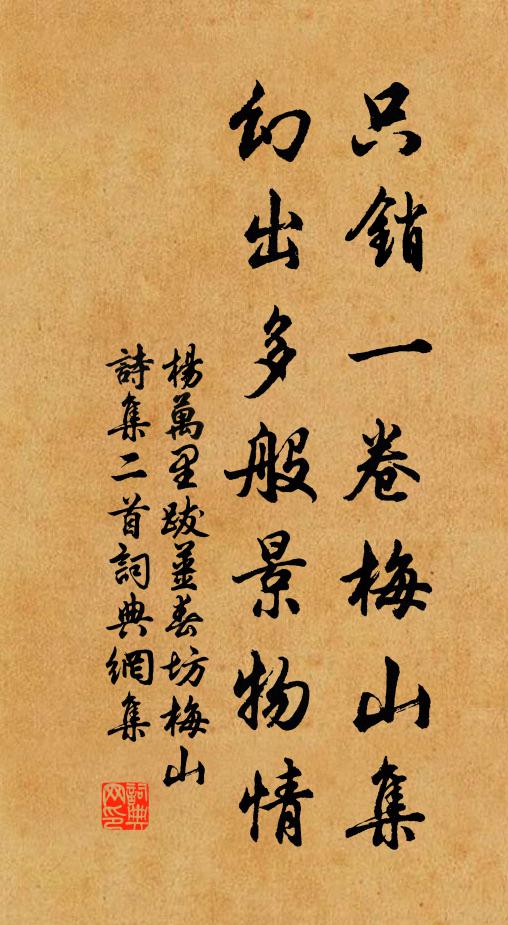 只銷一卷梅山集
幻出多般景物情
楊萬里跋薑春坊梅山
詩集二首詞典網集
詞典网印